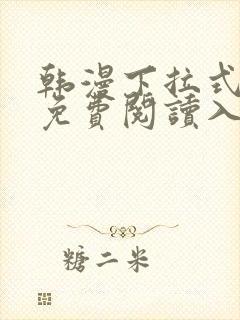 韩漫下拉式
免費閱讀入
糖二米